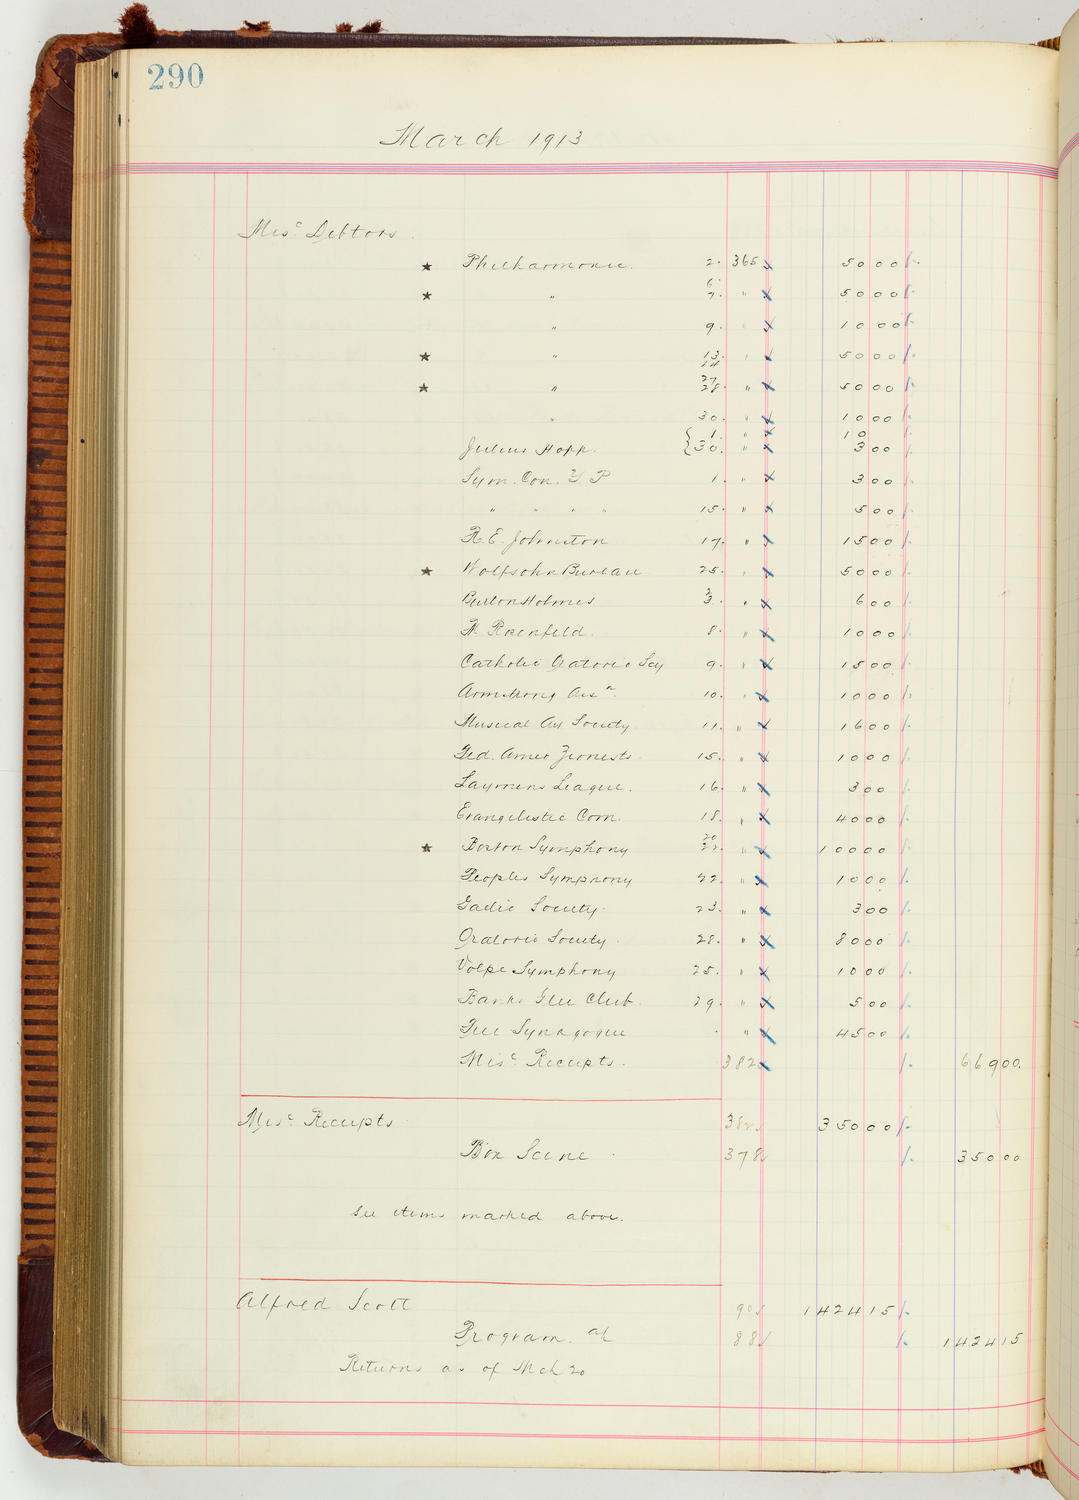 290
March 1913
Misc Debtors
★ Philharmonic. 2. 365 5000
★ " 6 7. " 5000
" 9. " 1000
★ " 13. 14 " 5000
★ " 27 28. " 5000
" 30. " 1000
{ 1. " 10
Julius Hopp. { 30. " 300
Sym. Con. Y P 1. " 300
" " " " 15. " 500
R. E. Johnston 17. " 1500
★ Wolfsohn Bureau 25. " 5000
Burton Holmes 2 3. " 600
Rosenfeld. 8. " 1000
Catholic Oratorio Socy 9. " 1500
Armstrong Assn. 10. " 1000
Musical Art Society 11. " 1600
Fed. Amer Zionists 15. " 1000
Laymens League. 16. " 300
Evangelistic Com. 18. " 4000
★ Boston Symphony 20 22. " 10000
Peoples Symphony 22. " 1000
Gaelic Society 23. " 300
Oratorio Society 28. " 8000
Volpe Symphony 25. " 1000
Banks Glee Club. 29. " 500
Free Synagogue . " 4500
Misc Receipts. 382 66900.
Misc Receipts 382 35000
Box Scene 378 35000
See items marked above.
Alfred Scott 90 142415
Program a/c 88 142415
Returns as of Mch 20